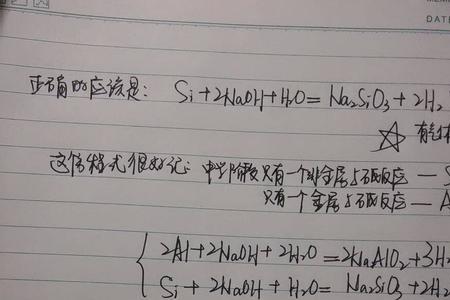 DATE
正确的应该是: Si+2NaOH+H₂O=Na₂SiO₃+2H₂
☆ 有气体
这个格式很好记: 中学阶段只有一个非金属与碱反应 — S
只有一个金属与碱反应 — A
2Al+2NaOH+2H₂O=2NaAlO₂+3H₂
Si+2NaOH+H₂O=Na₂SiO₃+2H₂